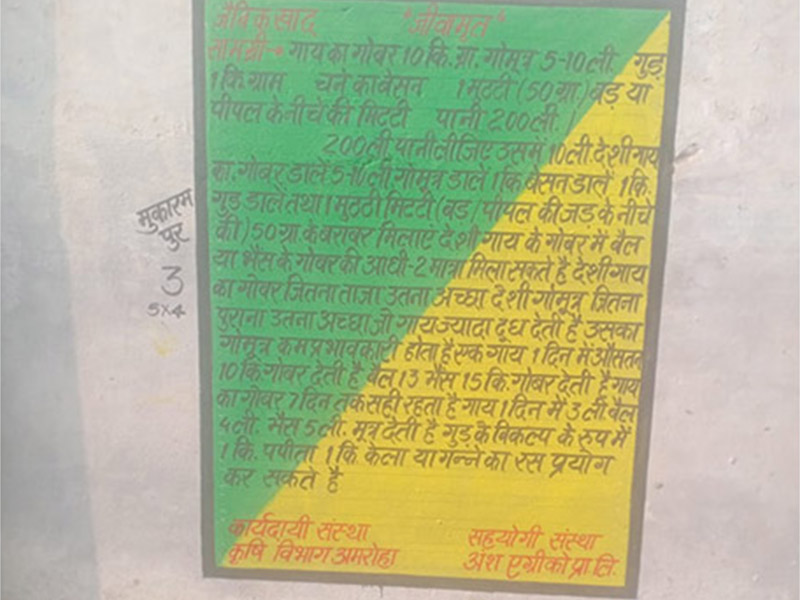 जैविक खाद "जीवामृत"
सामग्री→ गाय का गोबर 10 कि.ग्रा. गोमूत्र 5-10 ली. गुड़
1 कि.ग्राम चने का बेसन 1 मुटठी (50 ग्रा.) बड़ या
पीपल के नीचे की मिटटी पानी 200 ली.
200 ली. पानी लीजिए उसमें 10 ली. देशी गाय
का गोबर डालें 5-10 ली. गोमूत्र डालें 1 कि. बेसन डालें 1 कि.
गुड़ डालें तथा 1 मुठठी मिटटी (बड़ / पीपल की जड़ के नीचे
की) 50 ग्रा. के बराबर मिलाएं देशी गाय के गोबर में बैल
या भैंस के गोबर की आधी-2 मात्रा मिला सकते है देशी गाय
का गोबर जितना ताजा उतना अच्छा देशी गोमूत्र जितना
पुराना उतना अच्छा जो गाय ज्यादा दूध देती है उसका
गोमूत्र कम प्रभावकारी होता है एक गाय 1 दिन में औसतन
10 कि. गोबर देती है बैल 13 भैंस 15 कि. गोबर देती है गाय
का गोबर 7 दिन तक सही रहता है गाय 1 दिन में 3 ली. बैल
4 ली. भैंस 5 ली. मूत्र देती है गुड़ के विकल्प के रुप में
1 कि. पपीता 1 कि. केला या गन्ने का रस प्रयोग
कर सकते है
कार्यदायी संस्था सहयोगी संस्था
कृषि विभाग अमरोहा अंश एग्रीको प्रा. लि.
मुकारम
पुर
3
5×4